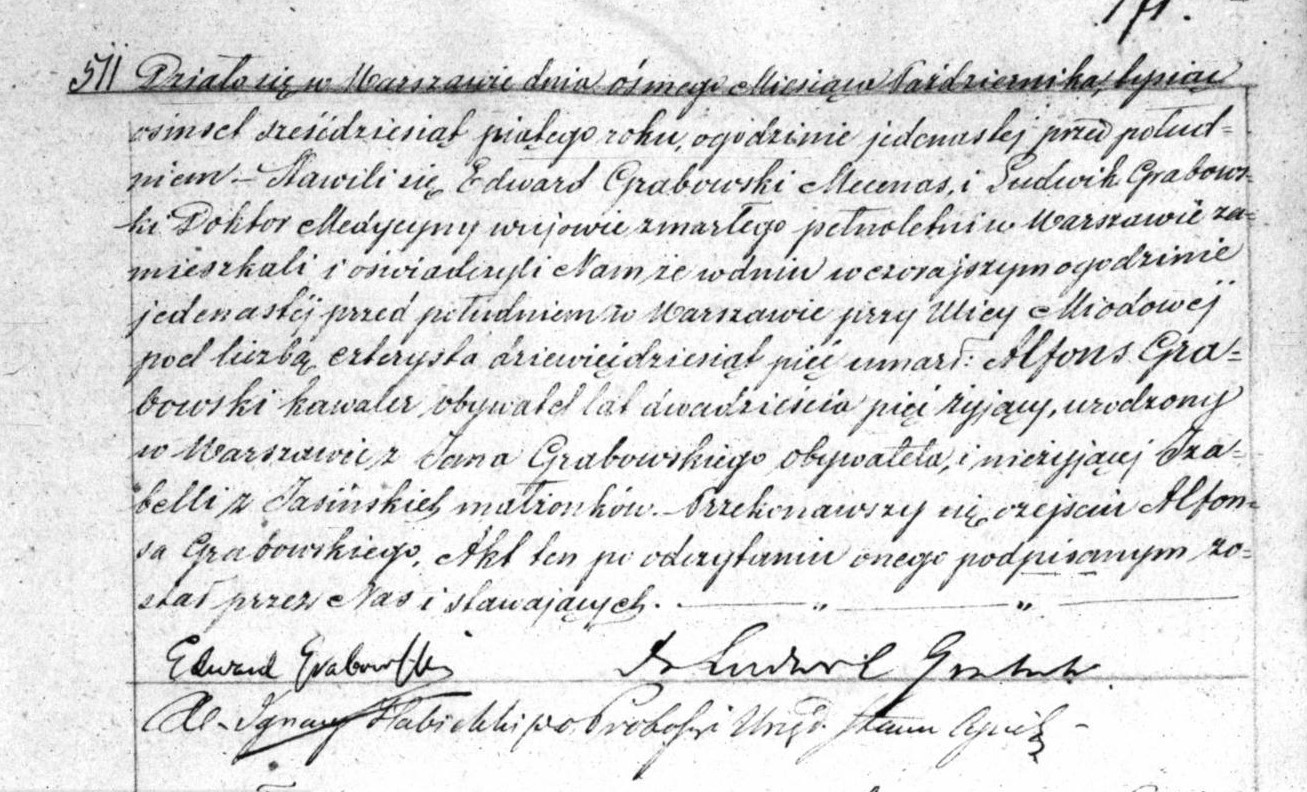 171.
511 Działo się w Warszawie dnia ósmego Miesiąca Października, tysiąc
osimset sześćdziesiąt piątego roku, o godzinie jedenastej przed połud=
niem. – Stawili się Edward Grabowski Mecenas, i Ludwik Grabows=
ki Doktor Medycyny wujowie zmarłego pełnoletni w Warszawie za=
mieszkali i oświadczyli Nam że w dniu wczorajszym o godzinie
jedenastej przed południem w Warszawie przy Ulicy Miodowej
pod liczbą czterysta dziewięćdziesiąt pięć umarł: Alfons Gra=
bowski kawaler obywatel lat dwadzieścia pięć żyjący, urodzony
w Warszawie z Jana Grabowskiego obywatela, i nieżyjącej Iza=
belli z Jasińskich małżonków. – Przekonawszy się o zejściu Alfon=
sa Grabowskiego, Akt ten po odczytaniu onego podpisanym zo=
stał przez Nas i stawających. — „ — „ —
Edward Grabowski Dr Ludwik Grabowski
X. Ignacy p.o. Proboszcz Urzęd. Stanu Cywil